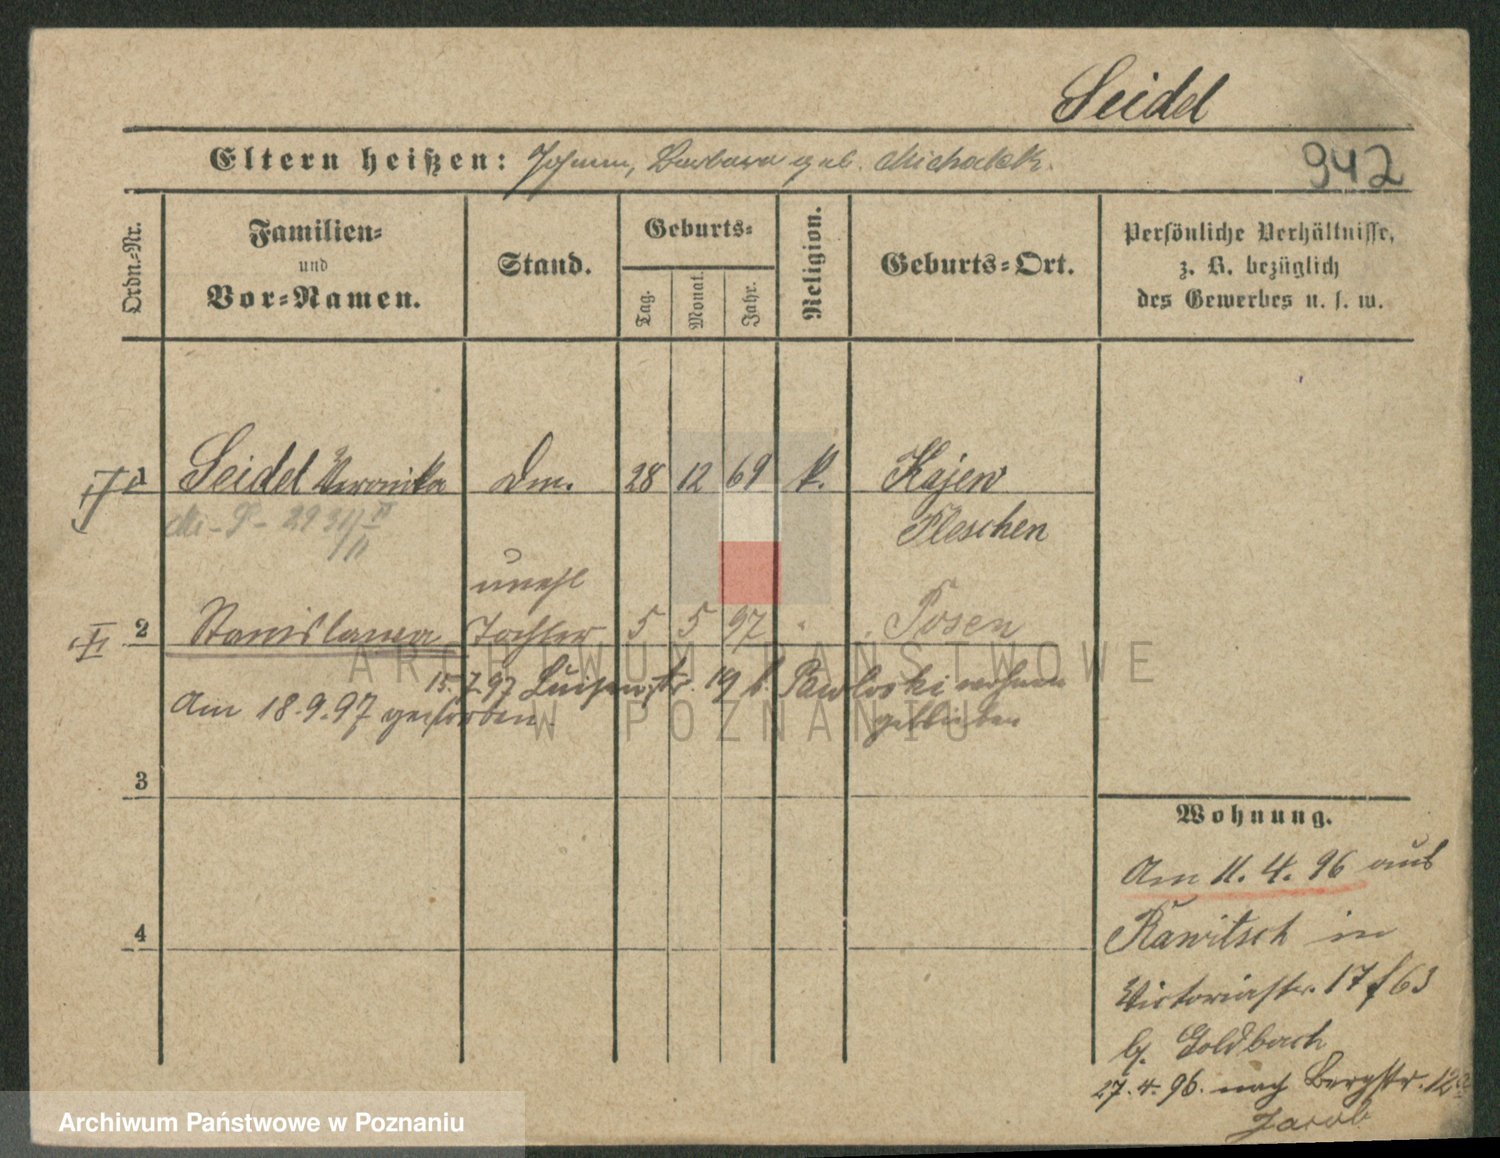 Seidel
Eltern heißen: Johann, Barbara geb. Michalak.
942
Ordn.-Nr.
Familien-
und
Vor-Namen.
Stand.
Geburts-
Tag.
Monat.
Jahr.
Religion.
Geburts-Ort.
Persönliche Verhältnisse,
z. B. bezüglich
des Gewerbes u. s. w.
1 Seidel Veronika Dm. 28 12 69 k. Kajew
Pleschen
unehl
2 Stanislawa Tochter 5 5 97 " Posen
15.7.97 Luisenstr. 19 b. Pawloski wohnen
geblieben
Am 18.9.97 gestorben.
3
4
Wohnung.
Am 11. 4. 96 aus
Rawitsch in
Victoriastr. 17 f 63
b. Goldbach
27. 4. 96. nach Bergstr. 12a
Jacob
ARCHIWUM PAŃSTWOWE
W POZNANIU
Archiwum Państwowe w Poznaniu